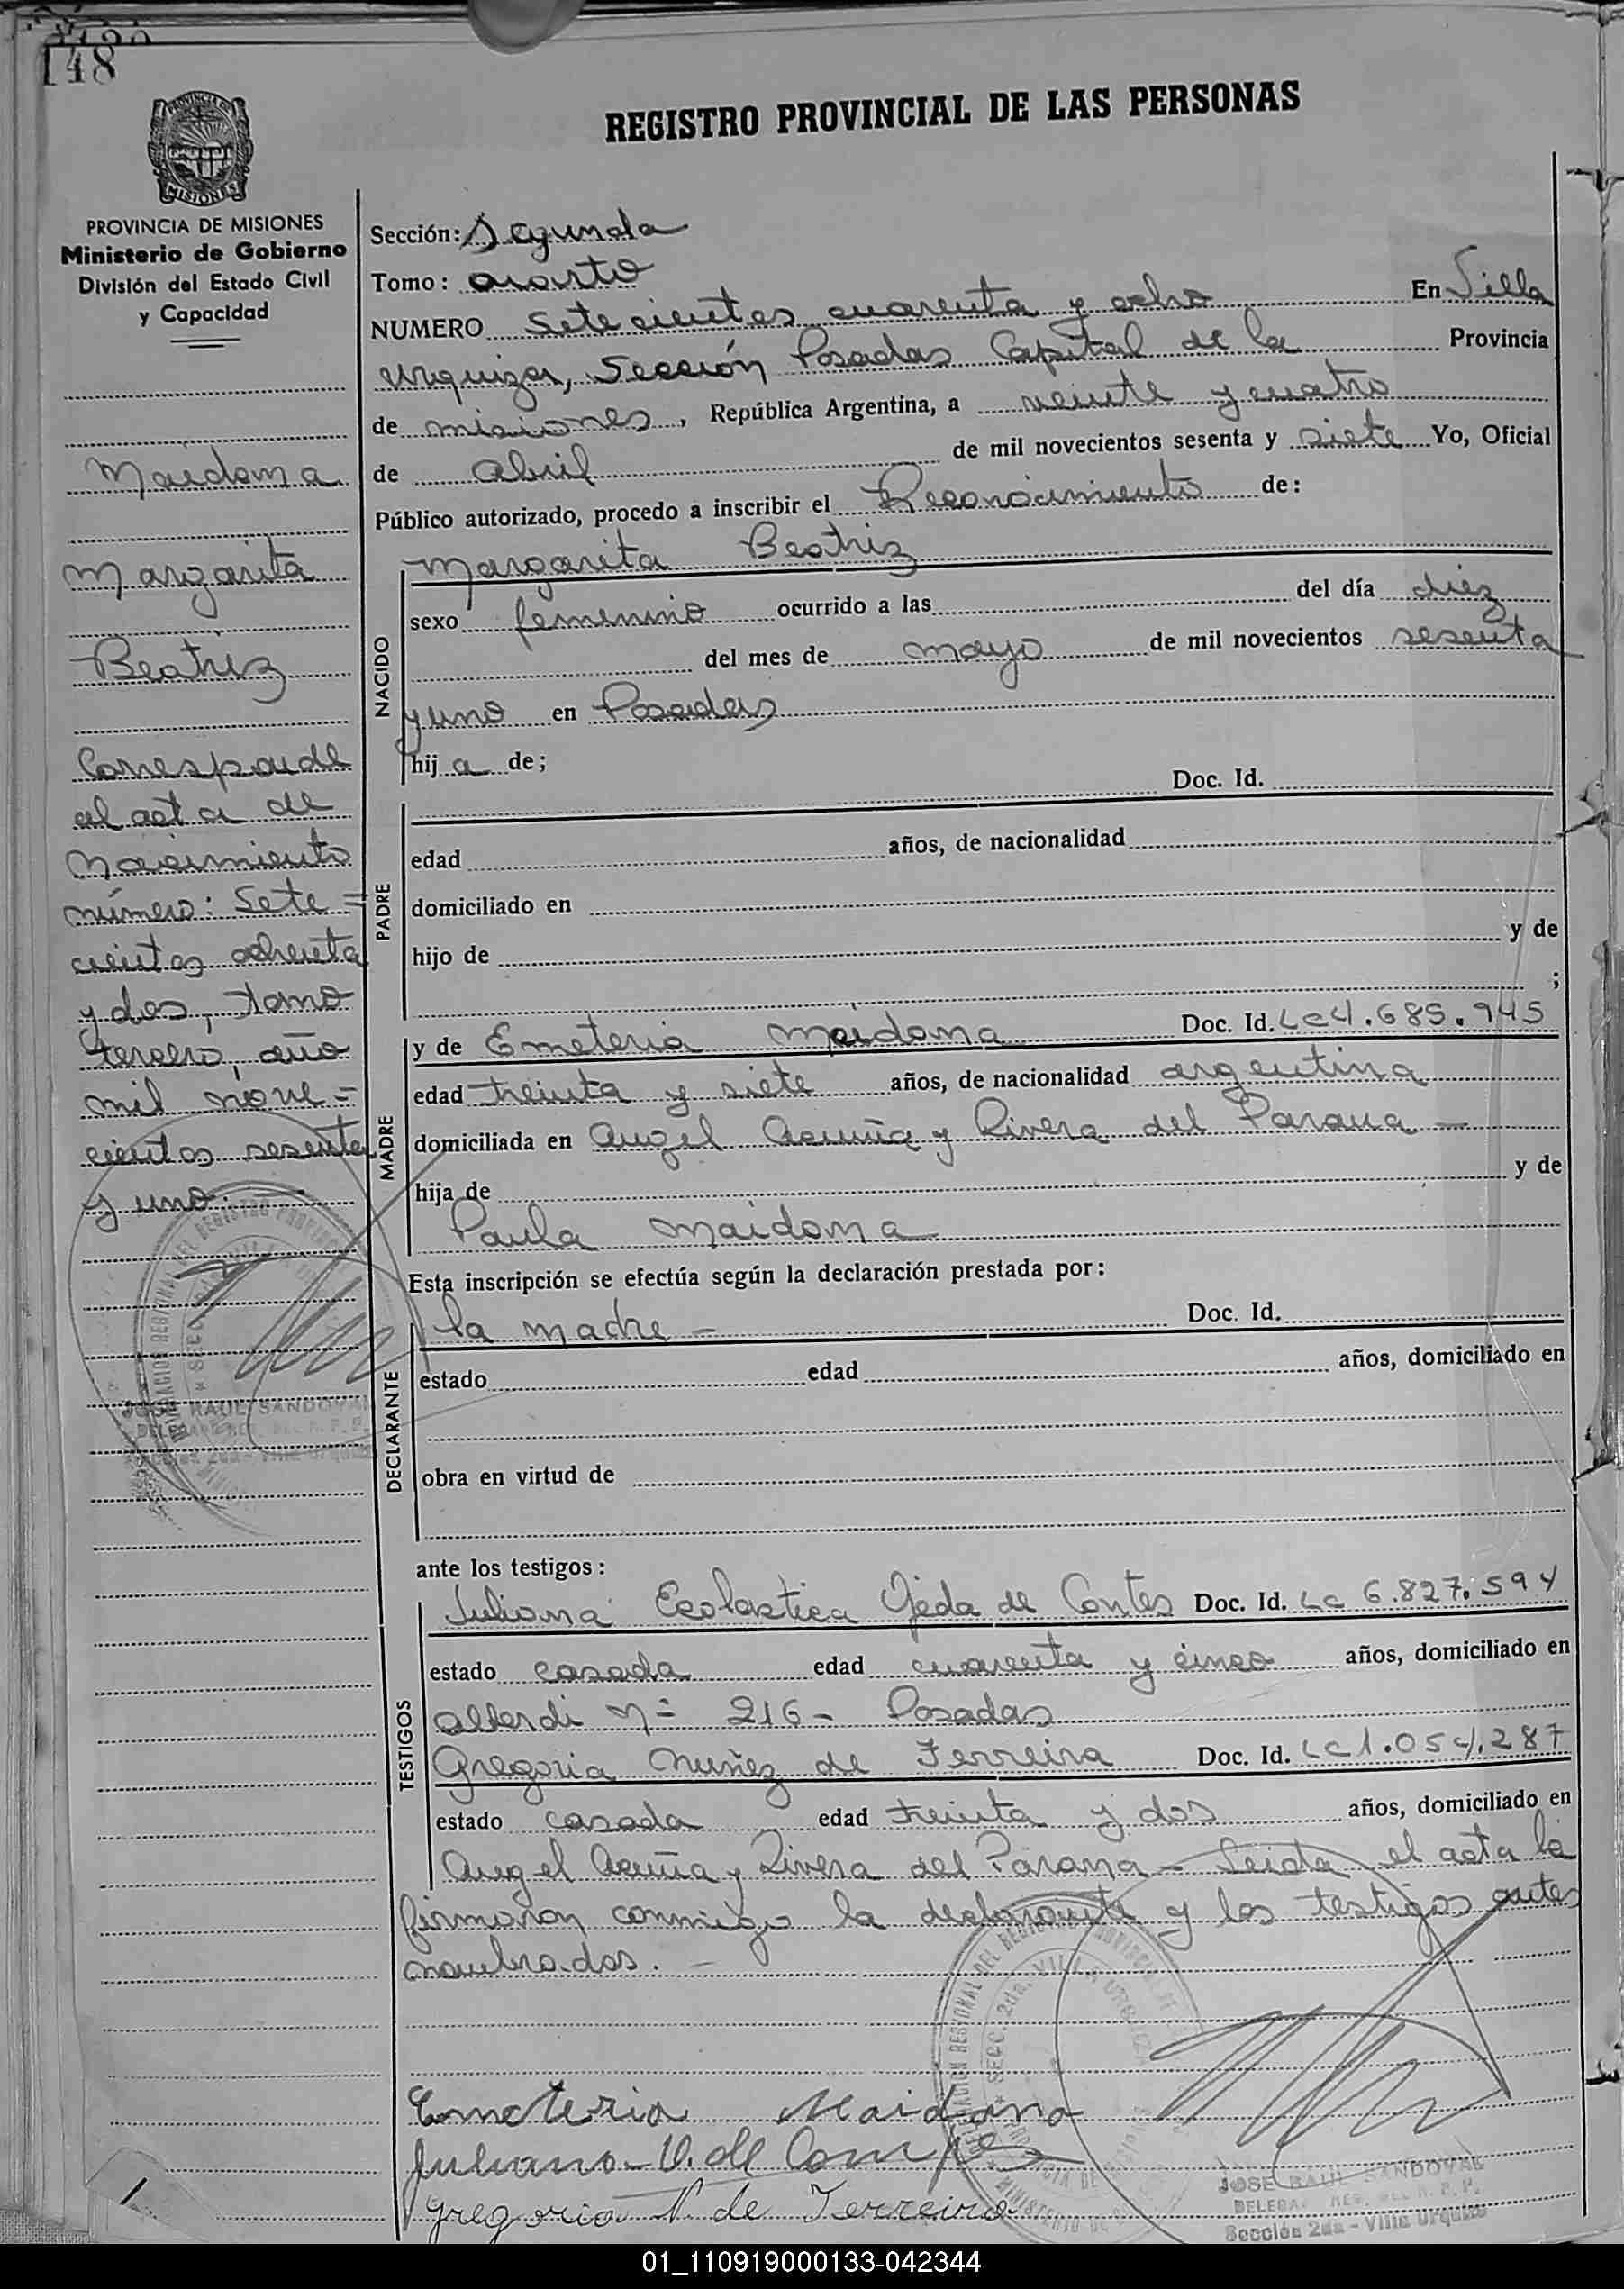 148
REGISTRO PROVINCIAL DE LAS PERSONAS
PROVINCIA DE MISIONES
Ministerio de Gobierno
División del Estado Civil
y Capacidad
Maidana
Margarita
Beatriz
Corresponde
al acta de
Nacimiento
número: Sete=
cientos ochenta
y dos, tomo
tercero, año
mil nove=
cientos sesenta
y uno.
JOSE RAUL SANDOVAL
Sección: Segunda
Tomo: cuarto
NUMERO Setecientos cuarenta y ocho En Villa
Urquiza, Sección Posadas Capital de la Provincia
de misiones, República Argentina, a veinte y cuatro
de abril de mil novecientos sesenta y siete Yo, Oficial
Público autorizado, procedo a inscribir el Reconocimiento de:
NACIDO
Margarita Beatriz
sexo femenino ocurrido a las del día diez
del mes de mayo de mil novecientos sesenta
y uno en Posadas
hija de;
PADRE
Doc. Id.
edad años, de nacionalidad
domiciliado en
hijo de y de
;
MADRE
y de Emeteria Maidana Doc. Id. Lc 4.685.945
edad treinta y siete años, de nacionalidad argentina
domiciliada en Angel Acuña y Rivera del Parana -
hija de y de
Paula Maidana
Esta inscripción se efectúa según la declaración prestada por:
DECLARANTE
la madre - Doc. Id.
estado edad años, domiciliado en
obra en virtud de
ante los testigos:
TESTIGOS
Juliana Escolastica Ojeda de Doc. Id. Lc 6.827.594
estado casada edad cuarenta y cinco años, domiciliado en
alberdi nº 216 - Posadas
Gregoria Nuñez de Ferreira Doc. Id. Lc 1.054.287
estado casada edad treinta y dos años, domiciliado en
Angel Acuña y Rivera del Parana - Leida el acta la
firmaron conmigo la declarante y los testigos antes
nombrados. -
Emeteria Maidana
Juliana O. de
Gregoria N. de Ferreira
JOSE RAUL SANDOVAL
Sección 2da - Villa Urquiza
01_110919000133-042344